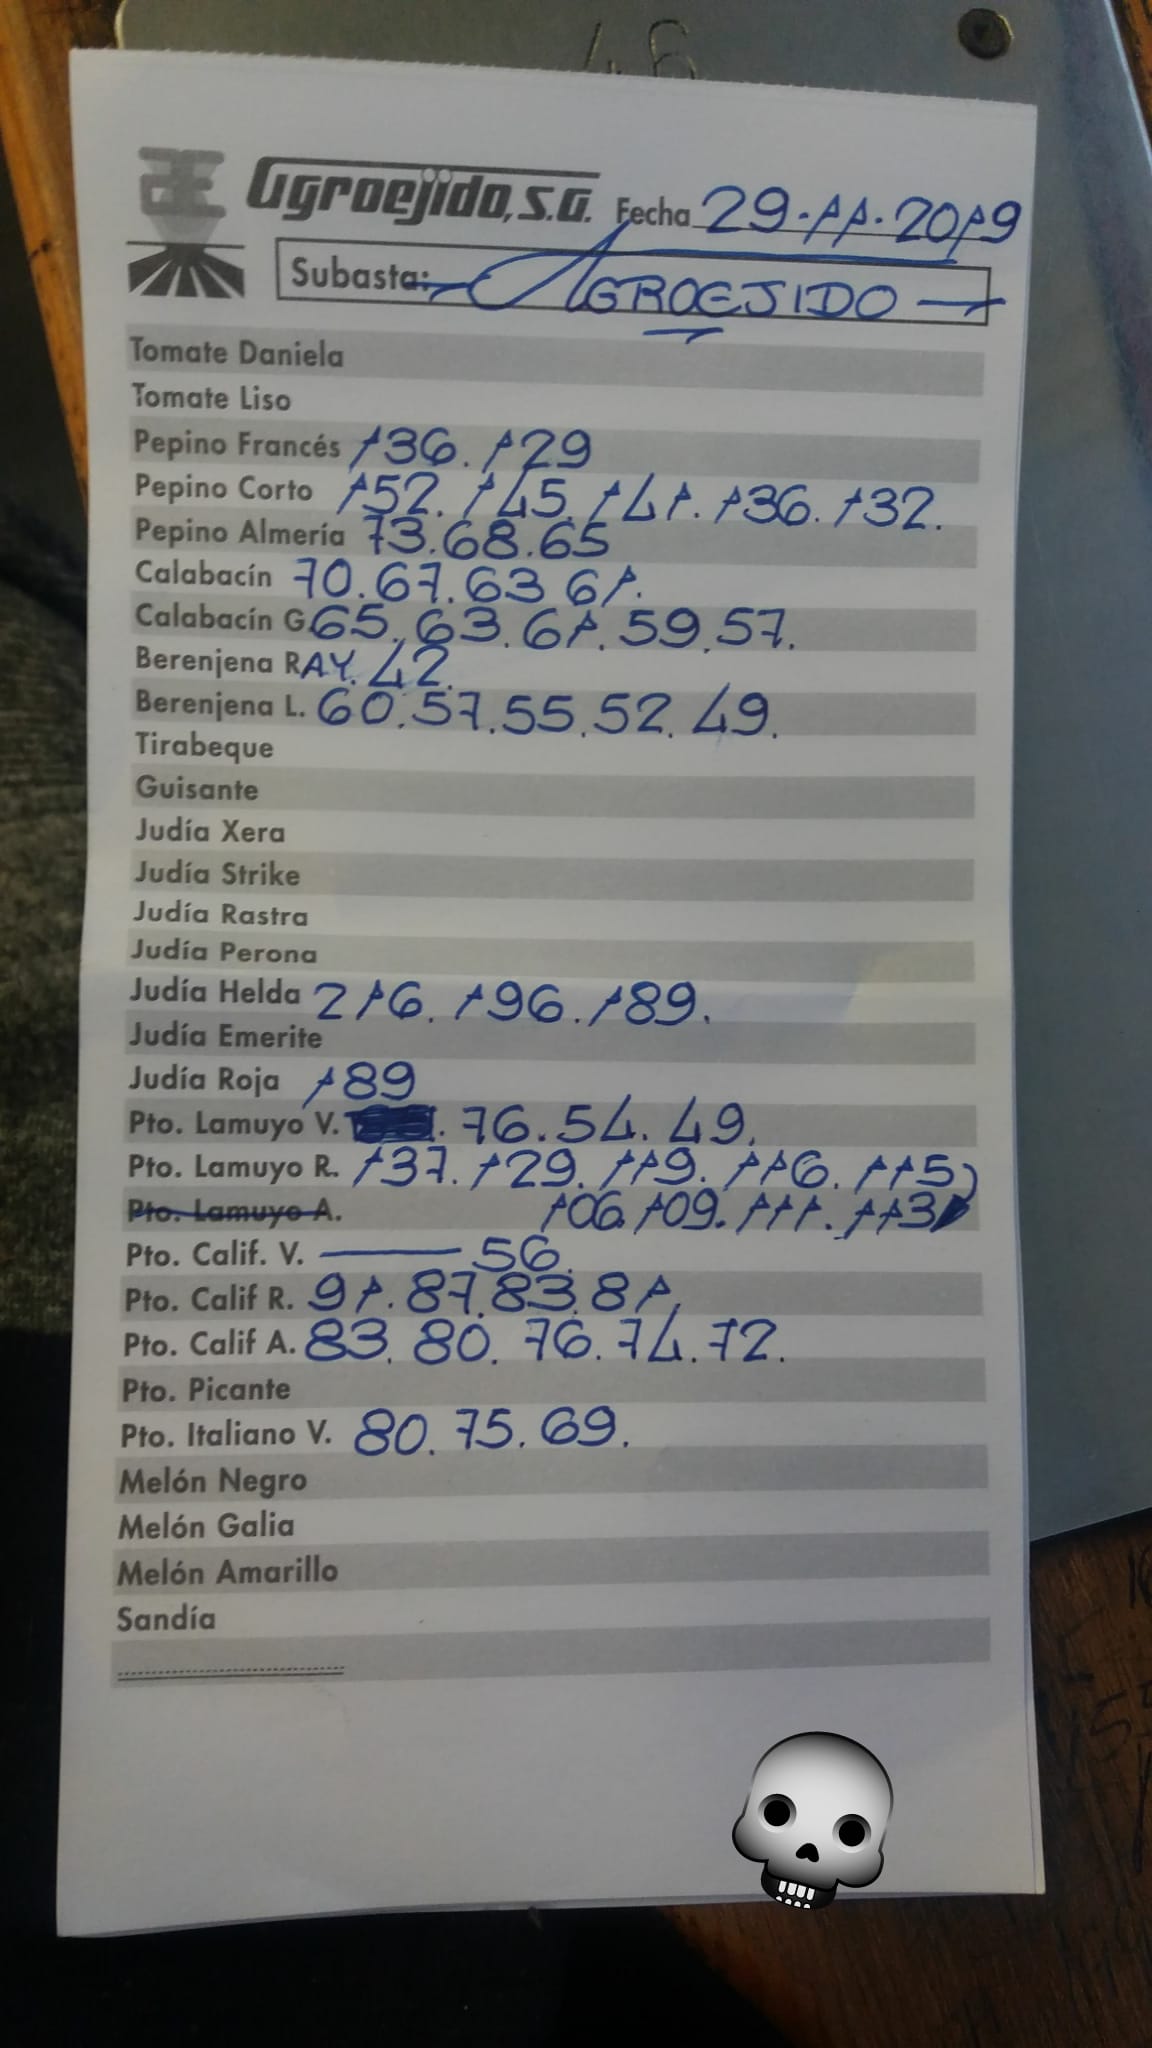 46
Agroejido, S.A. Fecha 29.11.2019
Subasta: AGROEJIDO
Tomate Daniela
Tomate Liso
Pepino Francés 136. 129
Pepino Corto 152. 145. 141. 136. 132.
Pepino Almería 73.68.65
Calabacín 70.67.63 61.
Calabacín G. 65. 63. 61. 59. 57.
Berenjena RAY. 42.
Berenjena L. 60.57.55.52. 49.
Tirabeque
Guisante
Judía Xera
Judía Strike
Judía Rastra
Judía Perona
Judía Helda 216. 196. 189.
Judía Emerite
Judía Roja 189
Pto. Lamuyo V. 76.54.49.
Pto. Lamuyo R. 137. 129. 119. 116. 115
Pto. Lamuyo A. 106. 109. 111. 113
Pto. Calif. V. 56.
Pto. Calif R. 91. 87. 83. 81.
Pto. Calif A. 83. 80. 76. 74. 72.
Pto. Picante
Pto. Italiano V. 80. 75. 69.
Melón Negro
Melón Galia
Melón Amarillo
Sandía